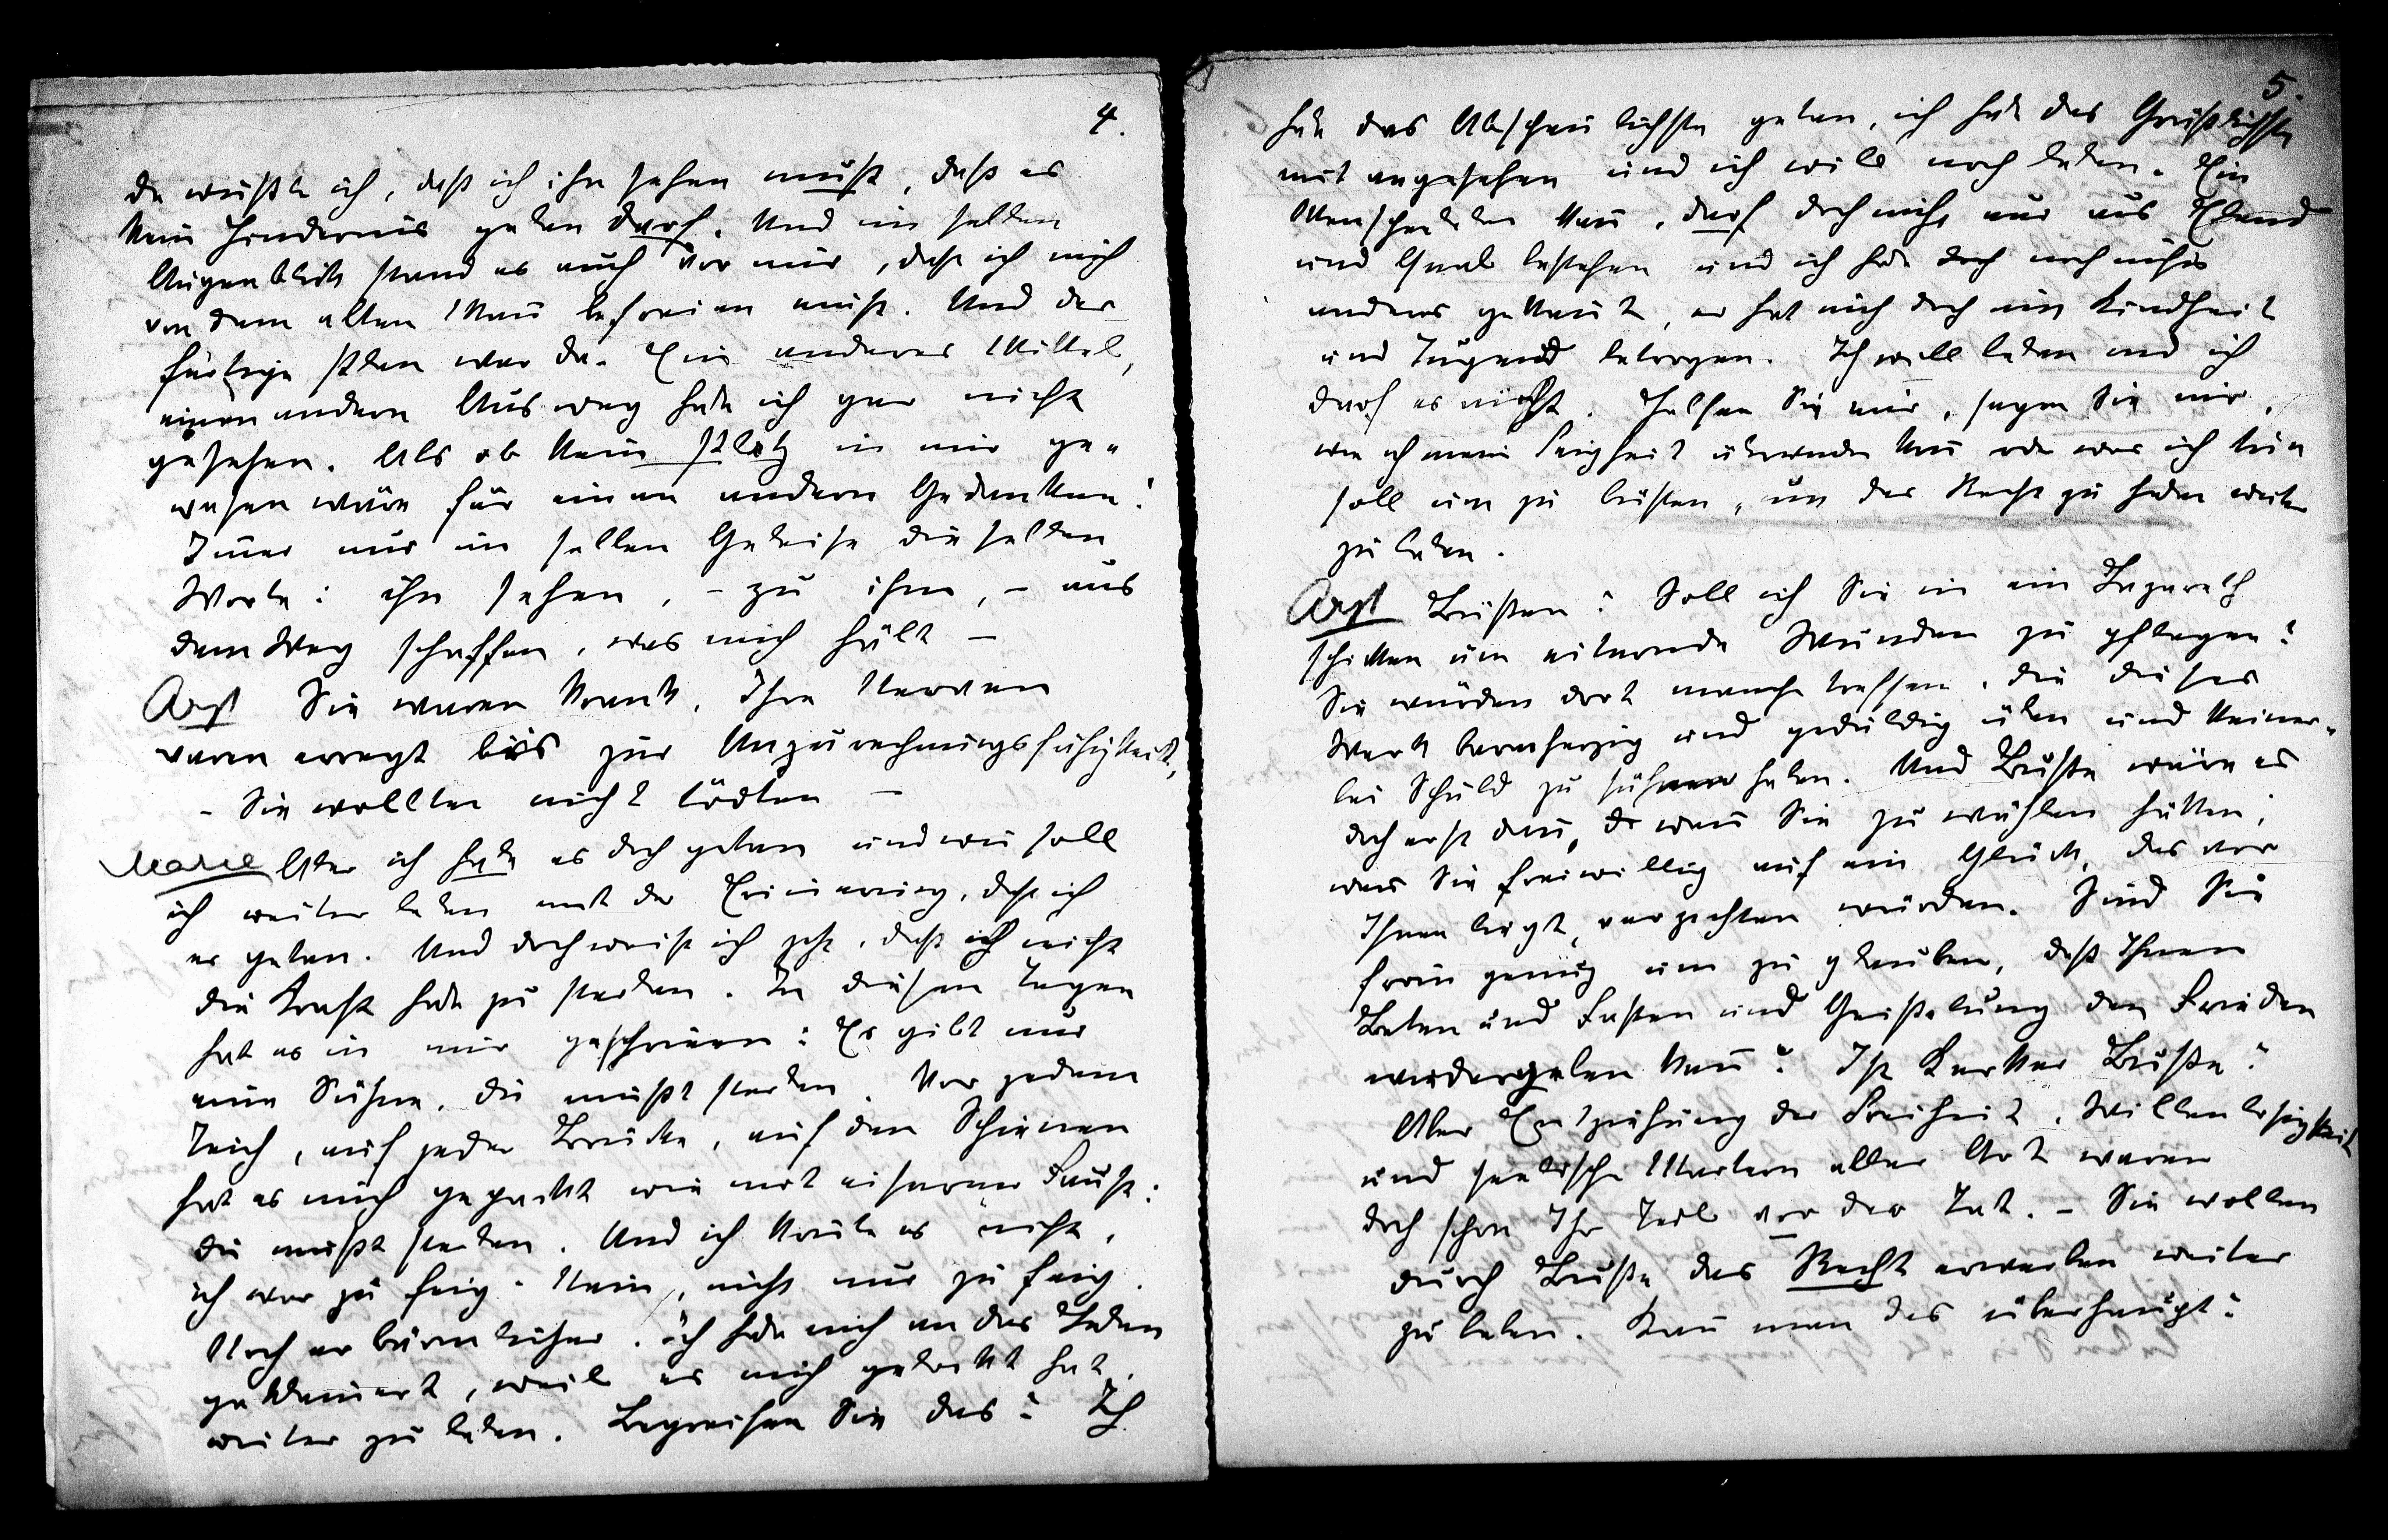 4.
da wußte ich, daß ich ihn sehen muß, daß es
kein Hindernis geben darf. Und im selben
Augenblick stand es auch vor mir, daß ich mich
von dem alten Mañ befreien muß. Und der
fertige Plan war da. Ein anderes Mittel,
einen andern Ausweg habe ich gar nicht
gesehen. Als ob kein Platz in mir ge-
wesen wäre für einen andern Gedanken!
Im̃er nur im selben Geleise dieselben
Worte: ihn sehen, - zu ihm, - aus
dem Weg schaffen, was mich hält -
Arzt Sie waren krank, Ihre Nerven
waren erregt bis zur Unzurechnungsfähigkeit,
- Sie wollten nicht tödten -
Marie Aber ich habe es doch getan und wie soll
ich weiter leben mit der Eriñerung, daß ich
es getan. Und doch weiß ich jetzt, daß ich nicht
die Kraft habe zu sterben. In diesen Tagen
hat es in mir geschrieen: Es gibt nur
eine Sühne, du mußt sterben. Vor jedem
Teich, auf jeder Brücke, auf den Schienen
hat es mich gepackt wie mit eiserner Faust:
du mußt sterben. Und ich koñte es nicht,
ich war zu feig. Nein, nicht nur zu feig.
Noch erbärmlicher. Ich habe mich an das Leben
geklam̃ert, weil es mich gelockt hat,
weiter zu leben. Begreifen Sie das? Ich
5.
habe das Abscheulichste getan, ich habe das Gräßlichste
mit angesehen und ich will noch leben. Ein
Menschenleben kañ, darf doch nicht nur aus Elend
und Qual bestehen und ich habe doch noch nichts
anderes gekañt, er hat mich doch um Kindheit
und Jugend betrogen. Ich will leben und ich
darf es nicht. Helfen Sie mir, sagen Sie mir,
wie ich meine Feigheit überwinden kañ oder was ich tun
soll um zu büßen, um das Recht zu haben weiter
zu leben.
Arzt Büßen? Soll ich Sie in ein Lazareth
schicken um eiternde Wunden zu pflegen?
Sie würden dort manche treffen, die dieses
Werk barmherzig und geduldig üben und keiner-
lei Schuld zu sühnen haben. Und Buße wäre es
doch erst dañ, wañ Sie zu wählen hätten,
weñ Sie freiwillig auf ein Glück, das vor
Ihnen liegt, verzichten würden. Sind Sie
from̃ genug um zu glauben, daß Ihnen
Beten und Fasten und Geißelung den Frieden
wiedergeben kañ? Ist Kerker Buße?
Aber Entziehung der Freiheit, Willenlosigkeit
und seelische Martern aller Art waren
doch schon Ihr Teil vor der Tat. - Sie wollen
durch Buße das Recht erwerben weiter
zu leben. Kañ man das überhaupt?